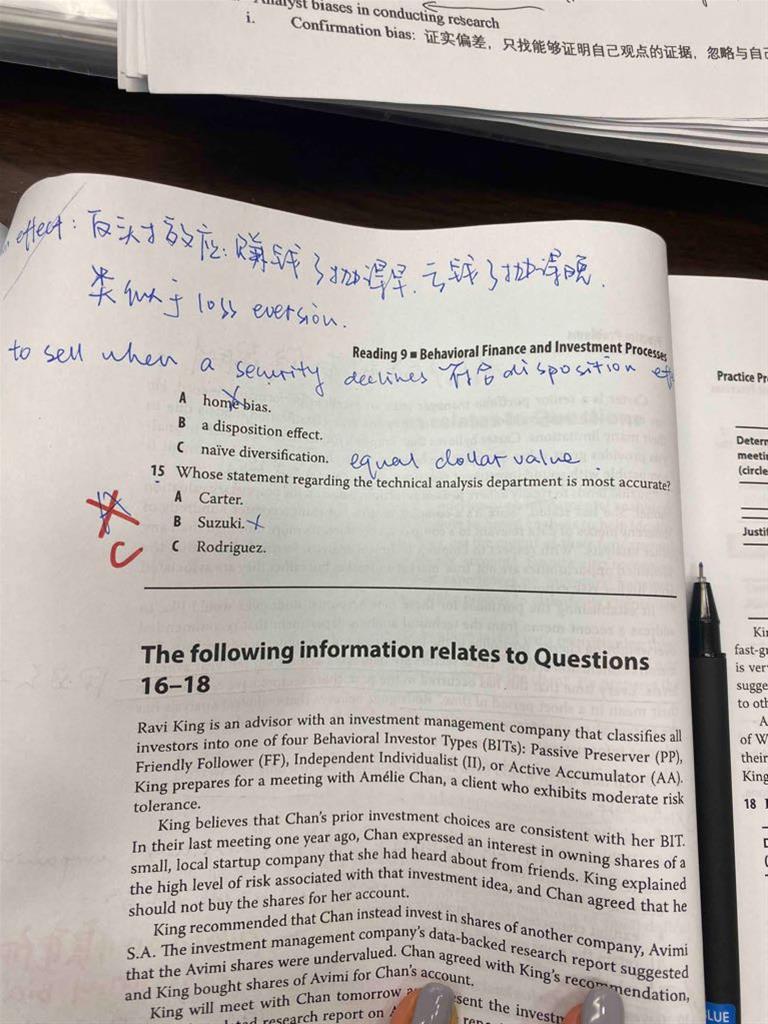 Analyst biases in conducting research
i. Confirmation bias: 证实偏差，只找能够证明自己观点的证据，忽略与自己
effect: 反对效应: 赚钱了抛得早. 亏钱了抛得晚.
类似于 loss eversion.
to sell when a security declines 符合 disposition
Reading 9 ■ Behavioral Finance and Investment Processes
A home bias.
B a disposition effect.
C naïve diversification. equal dollar value.
15 Whose statement regarding the technical analysis department is most accurate?
A Carter.
B Suzuki. ×
C Rodriguez.
C
The following information relates to Questions
16–18
Ravi King is an advisor with an investment management company that classifies all
investors into one of four Behavioral Investor Types (BITs): Passive Preserver (PP),
Friendly Follower (FF), Independent Individualist (II), or Active Accumulator (AA).
King prepares for a meeting with Amélie Chan, a client who exhibits moderate risk
tolerance.
King believes that Chan's prior investment choices are consistent with her BIT.
In their last meeting one year ago, Chan expressed an interest in owning shares of a
small, local startup company that she had heard about from friends. King explained
the high level of risk associated with that investment idea, and Chan agreed that he
should not buy the shares for her account.
King recommended that Chan instead invest in shares of another company, Avimi
S.A. The investment management company's data-backed research report suggested
that the Avimi shares were undervalued. Chan agreed with King's recommendation,
and King bought shares of Avimi for Chan's account.
King will meet with Chan tomorrow
research report on
Practice
meeti
(circle
Justi
fast-g
is ver
sugge
to oth
A
of W
their
King
18
LUE